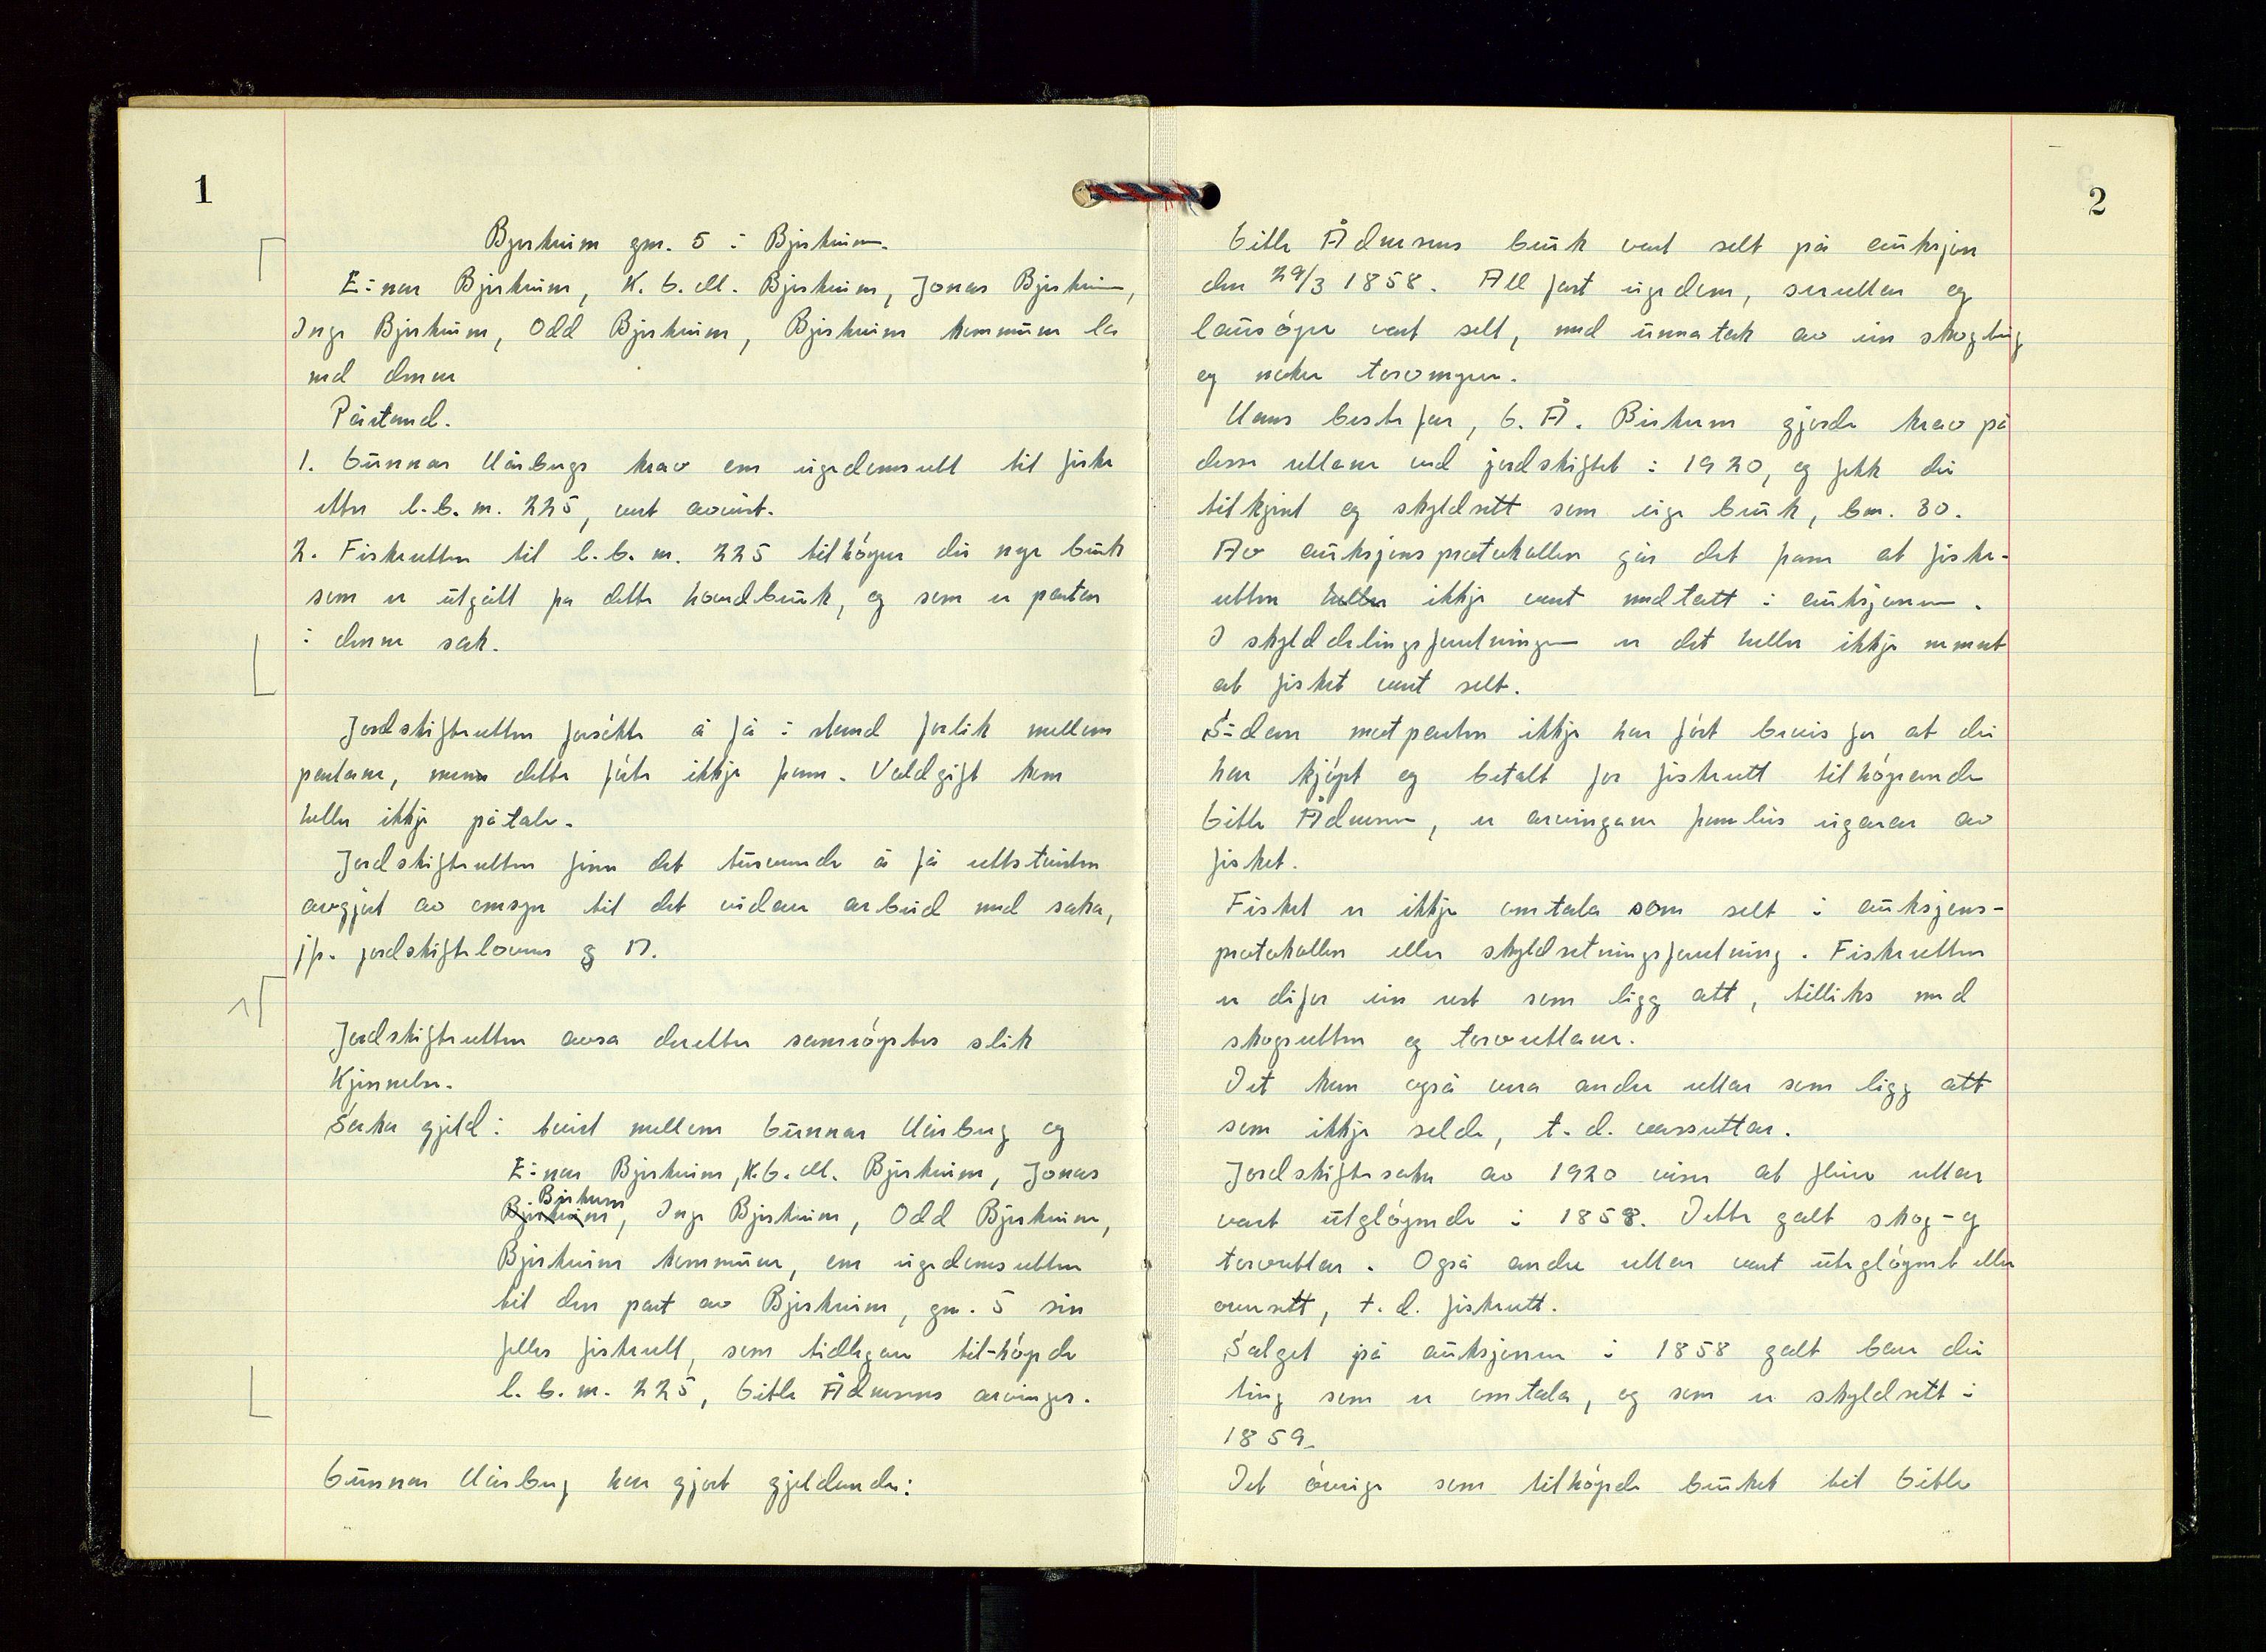 1
Bjerkreim gnr. 5 i Bjerkreim.
Einar Bjerkreim, K. G. M. Bjerkreim, Jonas Bjerkreim,
Inge Bjerkreim, Odd Bjerkreim, Bjerkreim kommune la
ned denne
Påstand.
1. Gunnar Hårbergs krav om eigedomsrett til fiske
etter l.b.nr. 225, vert avvist.
2. Fiskeretten til l.b.nr. 225 tilhøyrer dei nye bruk
som er utgått fra dette hovudbruk, og som er partar
i denne sak.
Jordskifteretten forsøkte å få i stand forlik mellom
partane, men dette førte ikkje fram. Voldgift kom
heller ikkje på tale.
Jordskifteretten finn det turvande å få rettstvisten
avgjort av omsyn til det vidare arbeid med saka,
jfr. jordskiftelovens § 17.
Jordskifteretten avsa deretter samrøystes slik
Kjennelse.
Saka gjeld: tvist mellom Gunnar Hårberg og
Einar Bjerkreim, K.G.M. Bjerkreim, Jonas
Birkrem
Bjerkreim, Inge Bjerkreim, Odd Bjerkreim,
Bjerkreim kommune, om eigedomsretten
til den part av Bjerkreim, gnr. 5 sin
felles fiskerett, som tidlegare til-høyrde
l.b.nr. 225, Gitle Ådnesens arvinger.
Gunnar Hårberg har gjort gjeldande:
2
Gitle Ådnesens bruk vart selt på auksjon
den 29/3 1858. All fast eigedom, seterretter og
lausøyre vart selt, med unnatak av ein skogteig
og nokre torvmyrer.
Hans bestefar, G. Å. Birkrem gjorde krav på
desse rettane ved jordskiftet i 1920, og fekk dei
tilkjent og skyldsett som eige bruk, bnr. 30.
Av auksjonsprotokollen går det fram at fiske-
retten heller ikkje vart medtatt i auksjonen.
I skylddelingsforretningen er det heller ikkje nemnt
at fisket vart selt.
Sidan motparten ikkje har ført bevis for at dei
har kjøpt og betalt for fiskerett tilhøyrande
Gitle Ådnesen, er arvingane framleis eigarar av
fisket.
Fisket er ikkje omtala som selt i auksjons-
protokollen eller skyldsetningsforretning. Fiskeretten
er difor ein rest som ligg att, tilliks med
skogretten og torvrettane.
Det kan også vera andre rettar som ligg att
som ikkje selde, t.d. vassrettar.
Jordskiftesaka av 1920 viser at fleire rettar
vart utgløymde i 1858. Dette galt skog- og
torvrettar. Også andre rettar vart utegløymt eller
oversett, t.d. fiskerett.
Salget på auksjonen i 1858 galt bare dei
ting som er omtala, og som er skyldsett i
1859.
Det øvrige som tilhøyrde bruket til Gitle